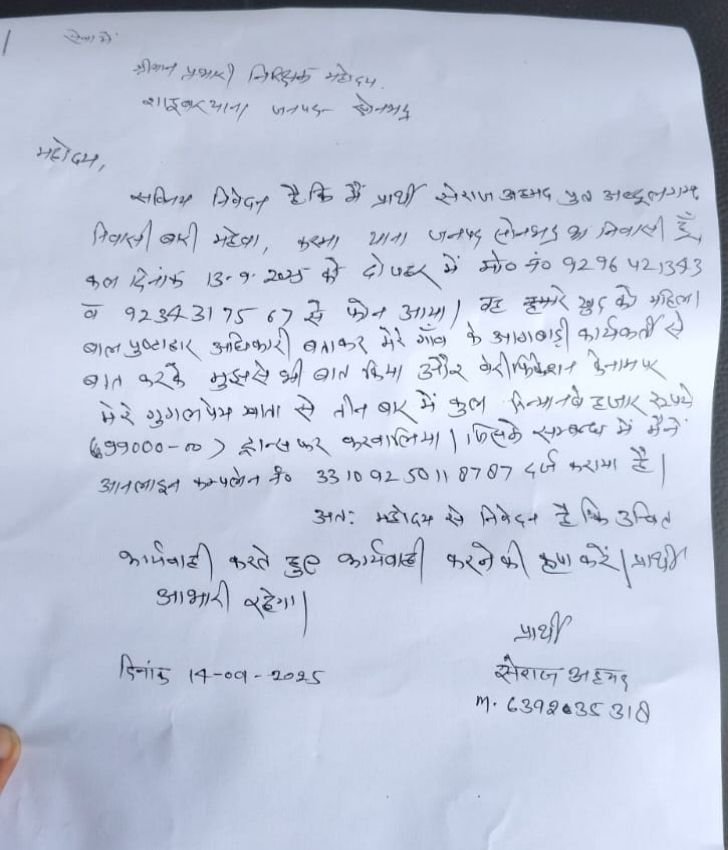 सेवा में
श्रीमान प्रभारी निरीक्षक महोदय.
साइबर थाना जनपद सोनभद्र
महोदय,
सविनय निवेदन है कि मैं प्रार्थी सेराज अहमद पुत्र
निवासी बारी महेवा, करमा थाना जनपद सोनभद्र का निवासी हूँ,
कल दिनांक 13-9-2025 को दोपहर में मो० नं० 9296421343
व 9234317567 से फोन आया। वह हमारे खुद को महिला
बाल पुष्टाहार अधिकारी बताकर मेरे गाँव के आगंबाड़ी कार्यकर्ती से
बात करके मुझसे भी बात किया और वेरीफिकेशन के नाम पर
मेरे गुगल पेय खाता से तीन बार में कुल हजार रुपये
99000-00) ट्रान्सफर करवालिया। जिसके सम्बन्ध में मैंने
आनलाइन कम्पलेन नं० 33109250118787 दर्ज कराया है।
अतः महोदय से निवेदन है कि उचित
कार्यवाही करते हुए कार्यवाही करने की कृपा करें। प्रार्थी
आभारी रहेगा।
प्रार्थी
दिनांक 14-09-2025 सेराज अहमद
M. 6392035318